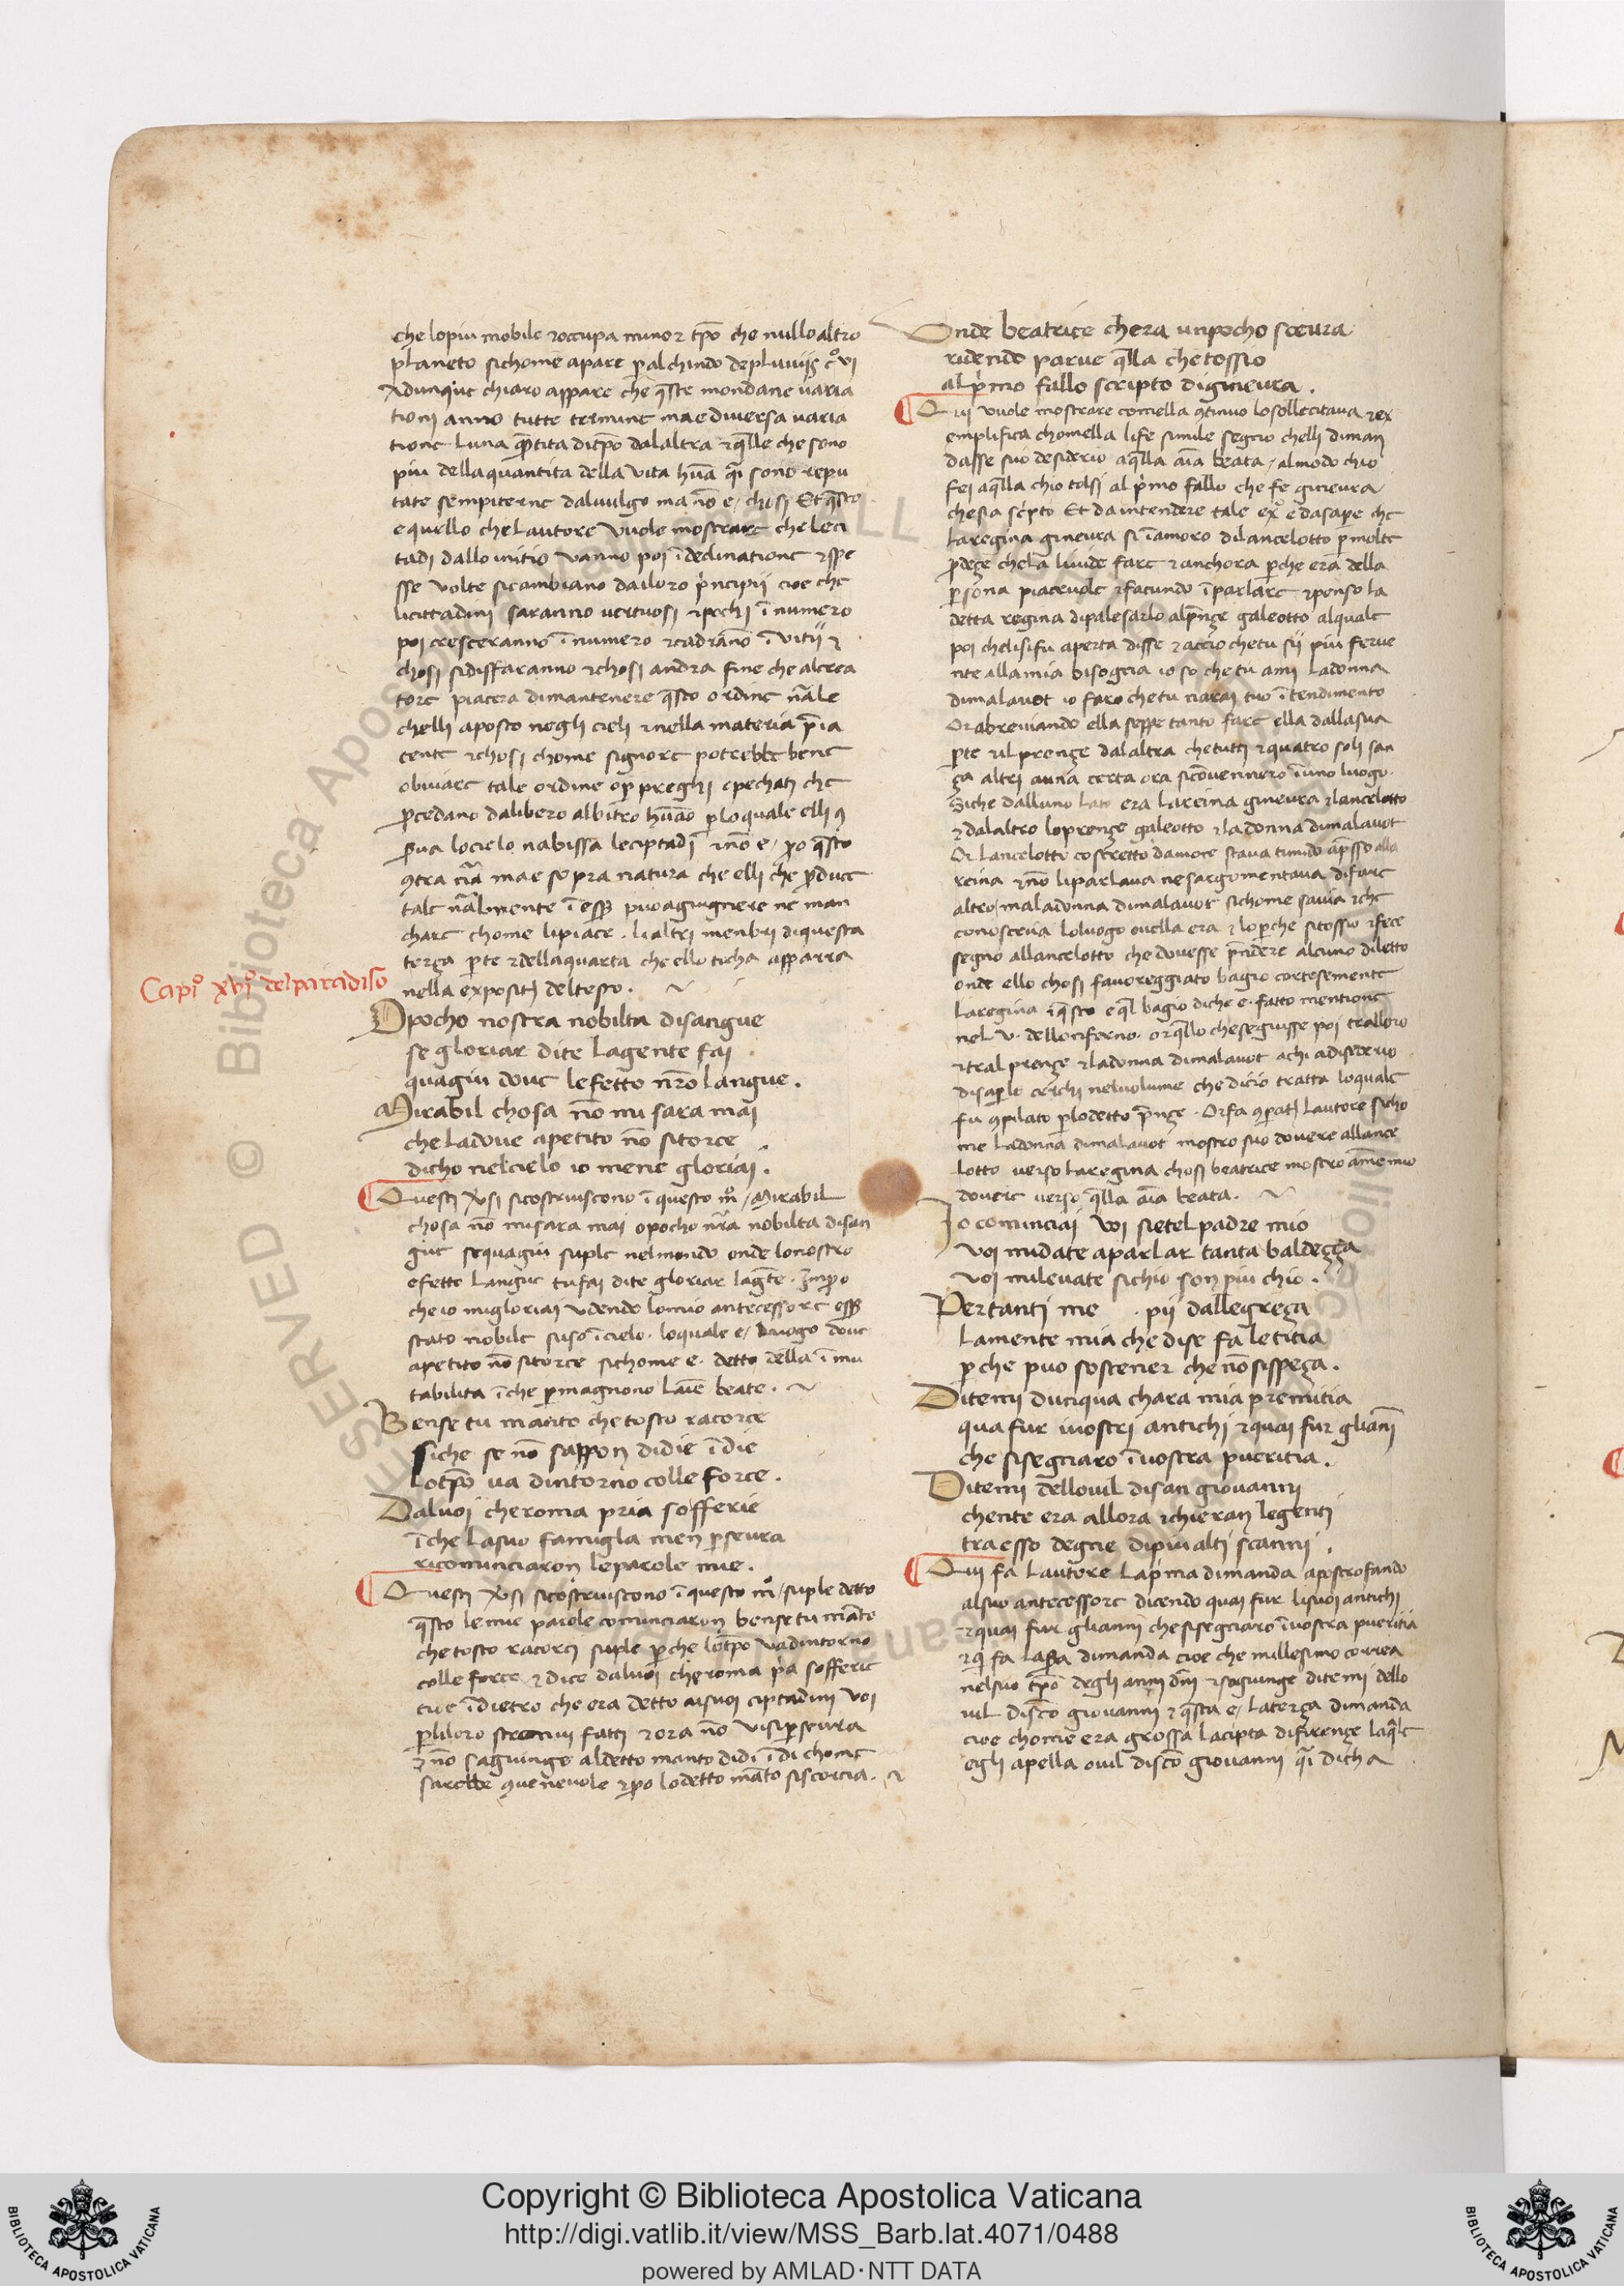 che lopiu mobile ⁊occupa minor tp̄o che nullo altro
planeto sichome apare ꝑ alchindo depluviijs
Adunque chiaro appare che q̄ste mondane varia
tioni anno tutte termine ma e diversa varia
tione luna dal altra ⁊ q̄lle che sono
piu della quantita della vita hūa q̄i sono repu
tate sempiterne dal vulgo ma nō e chosi Et q̄sto
e quello che lautore vuole mostrare che leci
tadi dallo initio vanno poi ī declinatione ⁊ spe
sse volte sicambiano dailoro principii cioe che
licittadini saranno vertuosi ⁊ pochi ī numero
poi cresceranno ī numero ⁊ cadrāno ī vitij ⁊
chosi sidisfaranno ⁊ chosi andra fine che alcrea
tore piacera dimantenere q̄sto ordine nāle
chelli aposto negli cieli ⁊ nella materia p̄ia
cente ⁊ chosi chome signore potrebbe bene
obviare tale ordine o ꝑ preghi o pechati che
ꝓcedano da libero albitro hūano ꝑ lo quale elli
lo cielo nabissa le ciptadi ⁊ nō e ꝑo q̄sto
ↄtra nā ma e sopra natura che elli che ꝓduce
tale nālmente ī esse puo agiugnere ne man
chare chome lipiace. li altri membri diquesta
terza parte ⁊ dellaquarta che ello tocha apparra
nella exposit. deltesto.
Capi° xvi° del paradiso
O pocho nostra nobilta disangue
se gloriar dite lagente fai
quagiu dove lefetto nr̄o langue.
Mirabil chosa nō mi sara mai
che ladove apetito nō sitorce
dicho nelcielo io mene gloriai.
Questi v̄si sicostruiscono ī questo m° Mirabil
chosa nō misara mai o pocho nr̄a nobilta disan
gue se quagiu suple nel mondo onde lo nostro
efetto langue tu fai dite gloriar lagēte. Imꝑo
che io migloriai vdendo lomio antecessore esse
stato nobile suso ī cielo. loquale e luogo dove
apetito nō sitorce sichome e. detto della īmu
tabilita ī che ꝑmagnono laīe beate.
Bense tu manto che tosto racorce
siche se nō sappon didie ī die
lotp̄o va dintorno colle force.
Dalvoi cheroma pria sofferie
ī che lasuo famigla men ꝑsevra
ricominciaron leparole mie.
Questi v̄si sicostruiscono ī questo m° suple detto
q̄sto le mie parole cominciaron bense tu māto
che tosto racorci suple ꝑche lotp̄o va dintorno
colle force ⁊ dice dalvoi cheroma pria sofferie
tue ī dietro che era detto aisuoi ciptadini voi
ꝑ liloro fatti ⁊ ora nō visiꝑsevra
nō saggiunge aldetto manto didi ī di chome
sarebbe ↄvenevole ⁊ ꝑo lodetto māto siscorcia.
Onde beatrice chera unpocho scevra
ridendo parve q̄lla che tossio
alprimo fallo scripto diginevra.
Qui vuole mostrare comella ↄtinuo losollecitava ⁊ ex
emplifica chomella life simile segno chelli diman
dasse suo desiderio aq̄lla aīa beata / almodo chio
fei aq̄lla chio tolsi al primo fallo che fe ginevra
che sia scripto Et da intendere tale ex° e dasape che
laregina ginevra si īamoro dilancelotto ꝑ molte
ꝓdeze chela livide fare ⁊ anchora ꝑche era della
ꝑsona piacevole ⁊ facundo ī parlare ⁊ penso la
detta regina dipalesarlo alp̄nze galeotto alquale
poi chelisifu aperta disse ⁊ accio chetu sii piu ferve
nte alla mia bisogna io so che tu ami ladonna
dimalavot io faro che tu narai tuo ītendimento
Or abreviando ella seppe tanto fare ella dallasua
ꝑte ⁊il prenze dalaltra chetutti ⁊quatro soli san
za altri auna certa ora sicōvennero ī uno luogo.
Siche dalluno lato era lareina ginevra ⁊ lancelotto
⁊ dalaltro loprenze galeotto ⁊ ladonna dimalavot
Or lancelotto costretto damore stava timido apsso alla
reina ⁊ nō liparlava ne sargomentava difare
altro / ma ladonna dimalavot sichome savia ⁊ che
conoscieva loluogo ovella era ⁊ lo ꝑche sitossio ⁊ fece
segno allancelotto che dovesse p̄ndere alcuno diletto
onde ello chosi favoreggiato bagio cortesemente
laregina ⁊ q̄sto e q̄l bagio diche e. fatto mentione
nel v. delloniferno. or q̄llo cheseguisse poi tralloro
⁊ tral prenze ⁊ ladonna dimalavot achi a disiderio
disaꝑlo cerchi nelvolume che dicio tratta loquale
fu ↄpilato ꝑ lodetto p̄nze. Or fa ↄparat. lautore sicho
me ladonna dimalavot mostro suo dovere allance
lotto verso laregina chosi beatrice mostro ame mio
dovere verso q̄lla aīa beata.
Io cominciai voi sietel padre mio
voi midate aparlar tanta baldezza
voi milevate sichio son piu chio.
Per tanti me . pii dallegreza
lamente mia che dise fa letitia
ꝑche puo sostener che nō sispeza.
Ditemi dunqua chara mia premitia
qua fur ivostri antichi ⁊ quai fur gliāni
che sisegnaro ī vostra pueritia.
Ditemi dellovil disan giovanni
chente era allora ⁊ chieran legenti
traesso degne dipiu alti scanni.
Qui fa lautore laprima dimanda apostrofando
alsuo antecessore dicendo quai fur lisuoi antichi
⁊ quai fur glianni chesisegniaro ī vostra pueritia
⁊ q̄ fa la dimanda cioe che millesimo correa
nelsuo tp̄o degli anni dn̄i ⁊ sogiunge ditemi dello
vil discō giovanni ⁊ q̄sta e laterza dimanda
cioe chome era grossa lacipta difirenze laq̄le
egli apella ovil discō giovanni q̄i dicha
SERVED © Biblioteca Apostolica Vaticana
Copyright © Biblioteca Apostolica Vaticana
http://digi.vatlib.it/view/MSS_Barb.lat.4071/0488
powered by AMLAD·NTT DATA
BIBLIOTECA APOSTOLICA VATICANA
BIBLIOTECA APOSTOLICA VATICANA